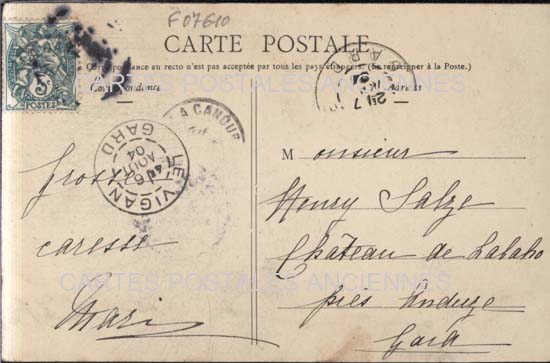 F07610
CARTE POSTALE
Correspondance au recto n'est pas acceptée par tous les pays étrangers. (Se renseigner à la Poste.)
Correspondance
Adresse
5c
POSTES
LE VIGAN
GARD
6
AOUT
04
LA CANOUR
Monsieur
Henry Salze
Château de Labaho
près Anduze
Gard
Grosse
caresse
Mari
CARTES POSTALES ANCIENNES
CARTES POSTALES ANCIENNES